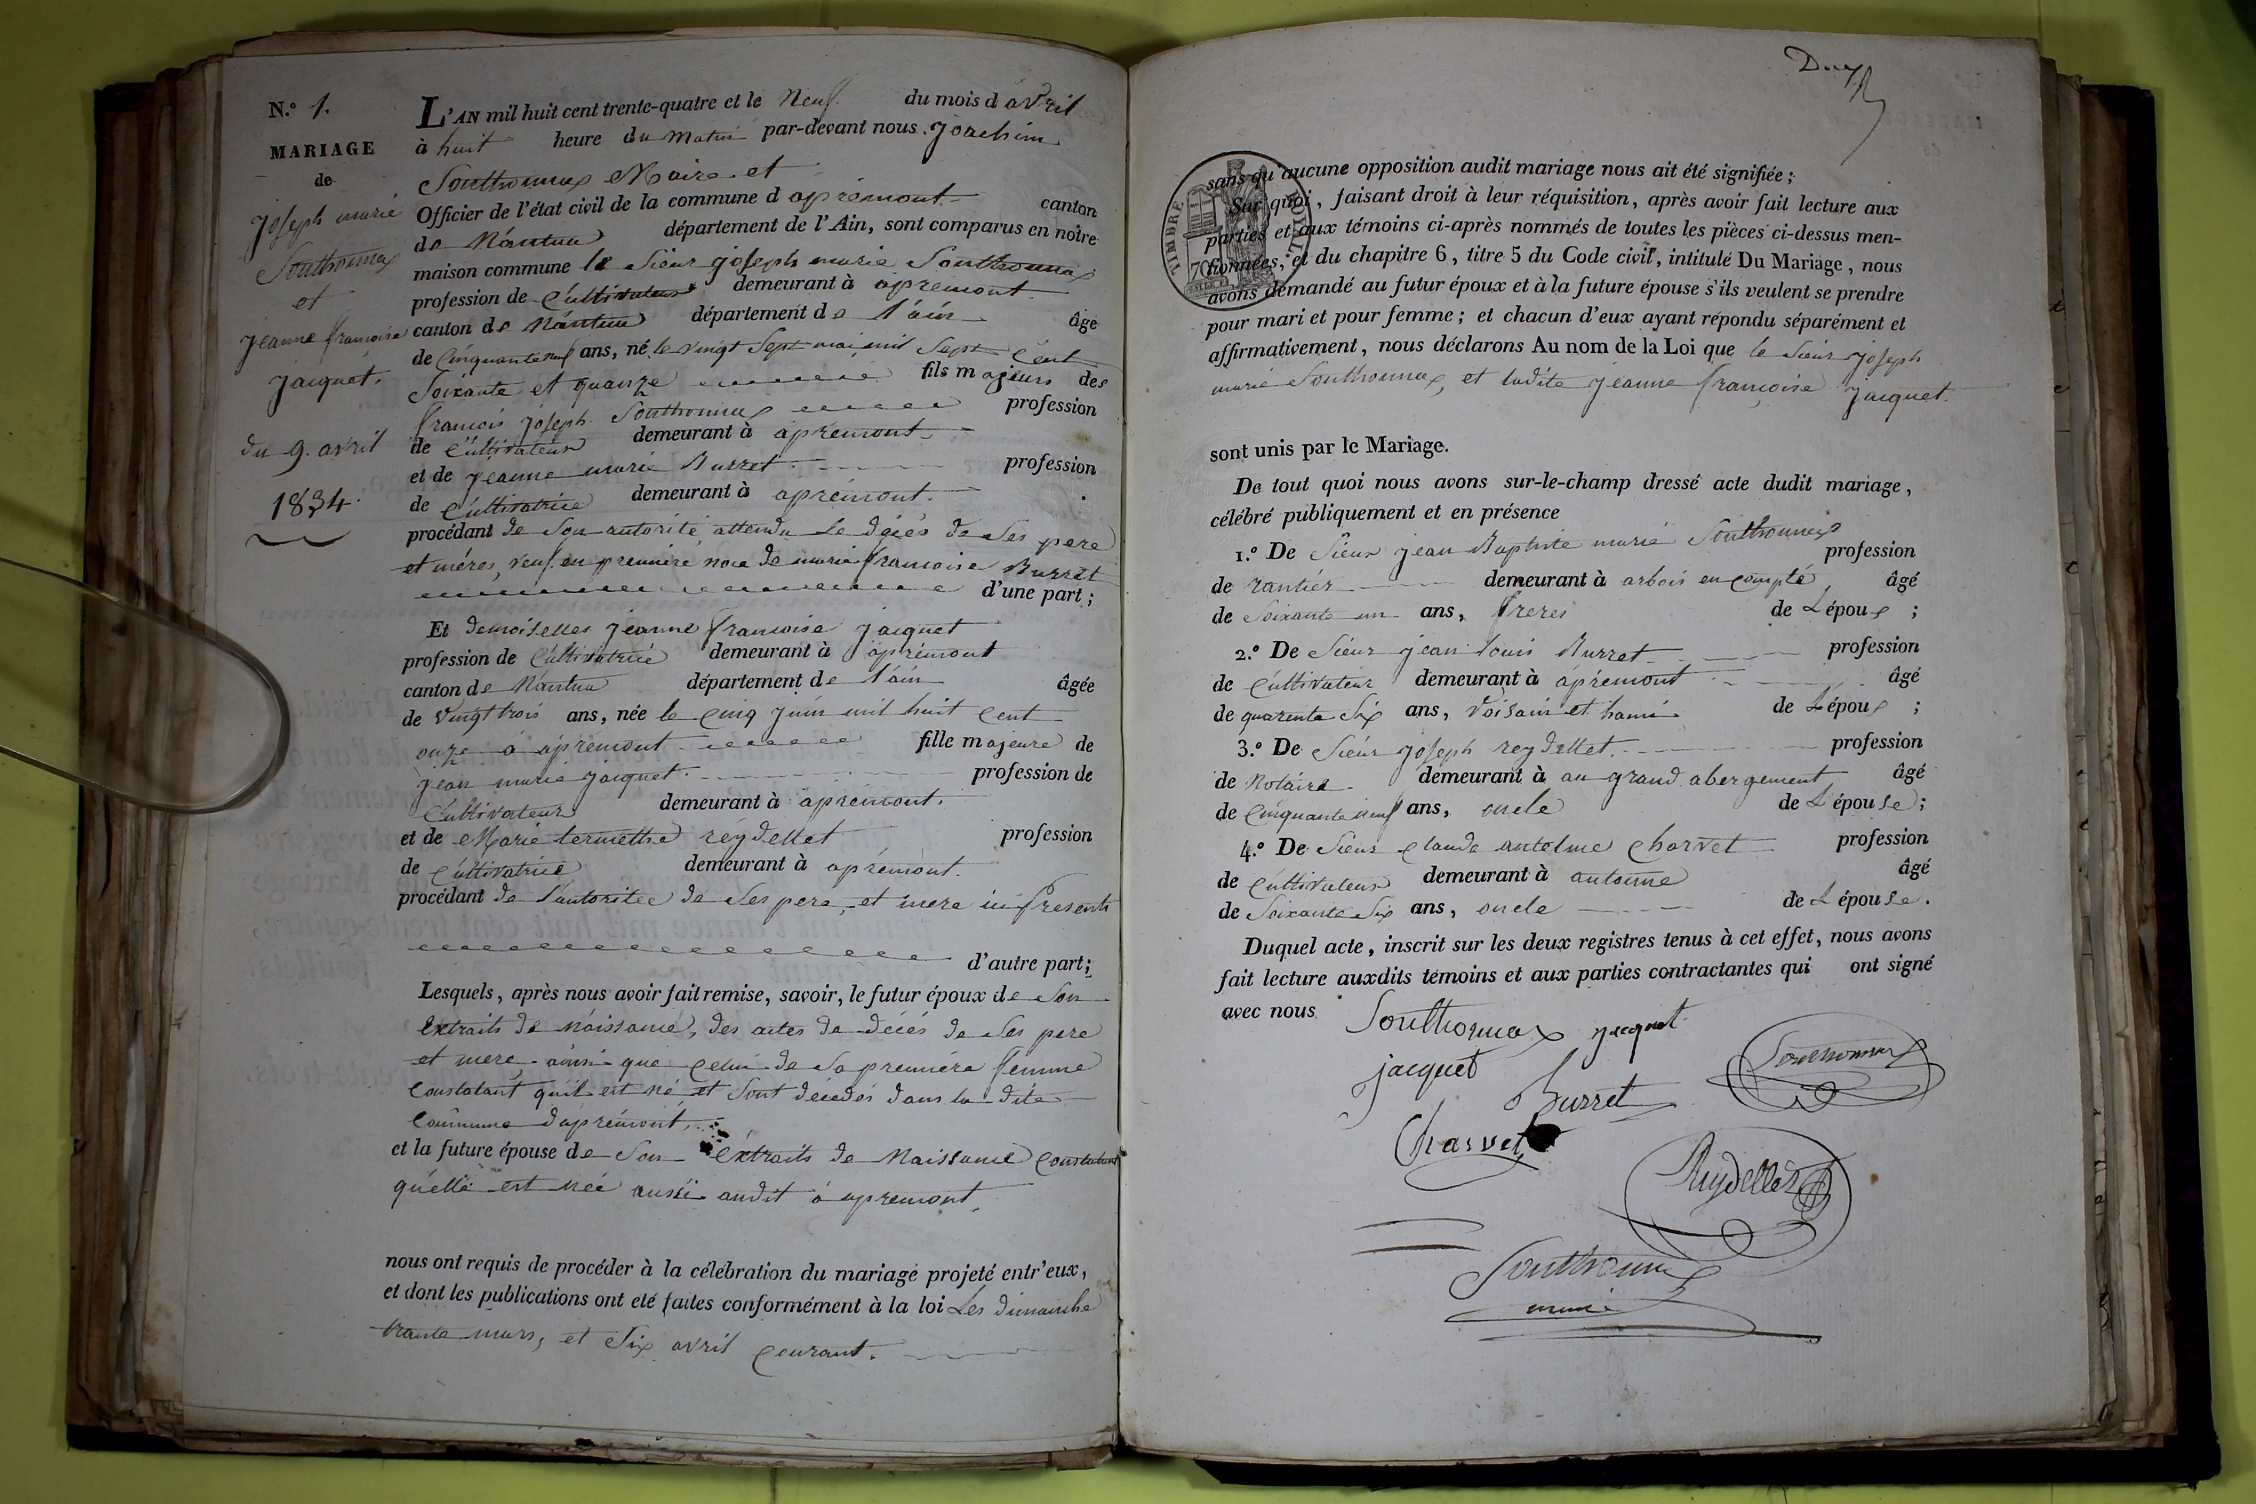 N.º 1.
MARIAGE
de
joseph marie
Southonnax
et
jeanne françoise
jacquet.
du 9. avril
1834.
L'AN mil huit cent trente-quatre et le Neuf du mois d avril
à huit heure du matin par-devant nous joachim
Southonnax Maire et
Officier de l'état civil de la commune d apremont canton
de Nantua département de l'Ain, sont comparus en notre
maison commune le Sieur joseph marie Southonnax
profession de Cultivateur demeurant à apremont
canton de Nantua département de l'ain âgé
de Cinquante neuf ans, né le vingt Sept mai mil Sept Cent
Soixante et quanze fils majeur des
françois joseph Southonnax profession
de Cultivateur demeurant à apremont
et de jeanne marie Burret profession
de Cultivatrice demeurant à apremont.
procédant de Son autorité attendu le décés de Ses pere
et méres, veuf en premiere noce de marie francoise Burret
d'une part;
Et demoiselles jeanne francoise jacquet
profession de Cultivatrice demeurant à apremont
canton de Nantua département de l'ain âgée
de vingt trois ans, née le cinq juin mil huit Cent
onze a apremont fille majeure de
jean marie jacquet. profession de
Cultivateur demeurant à apremont.
et de Marie termethe reydellet profession
de Cultivatrice demeurant à apremont.
procédant de l'autoritee de Ses pere, et mere ici Presents
d'autre part;
Lesquels, après nous avoir fait remise, savoir, le futur époux de Son
Extraits de Naissance, des actes de décés de Ses pere
et mere, ainsi que Celui de Sa premiere femme
Constatant qu'il est né et Sont décédés dans la dite
Commune d'apremont.
et la future épouse de Son Extraits de Naissance Constatant
qu'elle est née aussi audit a apremont,
nous ont requis de procéder à la célébration du mariage projeté entr'eux,
et dont les publications ont eté faites conformément à la loi Les dimanche
trante mars, et Six avril Courant.
TIMBRE ROYAL
70
sans qu'aucune opposition audit mariage nous ait été signifiée;
Sur quoi, faisant droit à leur réquisition, après avoir fait lecture aux
parties et aux témoins ci-après nommés de toutes les pièces ci-dessus men-
tionnées, et du chapitre 6, titre 5 du Code civil, intitulé Du Mariage, nous
avons demandé au futur époux et à la future épouse s'ils veulent se prendre
pour mari et pour femme; et chacun d'eux ayant répondu séparément et
affirmativement, nous déclarons Au nom de la Loi que le Sieur joseph
marie Southonnax, et ladite jeanne françoise jacquet.
sont unis par le Mariage.
De tout quoi nous avons sur-le-champ dressé acte dudit mariage,
célébré publiquement et en présence
1.º De Sieur jean Baptiste marie Southonnax profession
de rantier demeurant à arbois en Compté, âgé
de Soixante un ans, freres de L'époux;
2.º De Sieur jean louis Burret profession
de Cultivateur demeurant à apremont âgé
de quarente Six ans, Voisain et hami de L'époux;
3.º De Sieur joseph reydellet. profession
de Notaire demeurant à au grand abergement âgé
de Cinquante neuf ans, oncle de L'épouse;
4.º De Sieur Claude antelme Charvet profession
de Cultivateur demeurant à antoine âgé
de Soixante Six ans, oncle de L'épouse.
Duquel acte, inscrit sur les deux registres tenus à cet effet, nous avons
fait lecture auxdits témoins et aux parties contractantes qui ont signé
avec nous
Southonnax jacquet
jacquet Southonnax
Burret
Charvet
Reydellet
Southonnax
maire